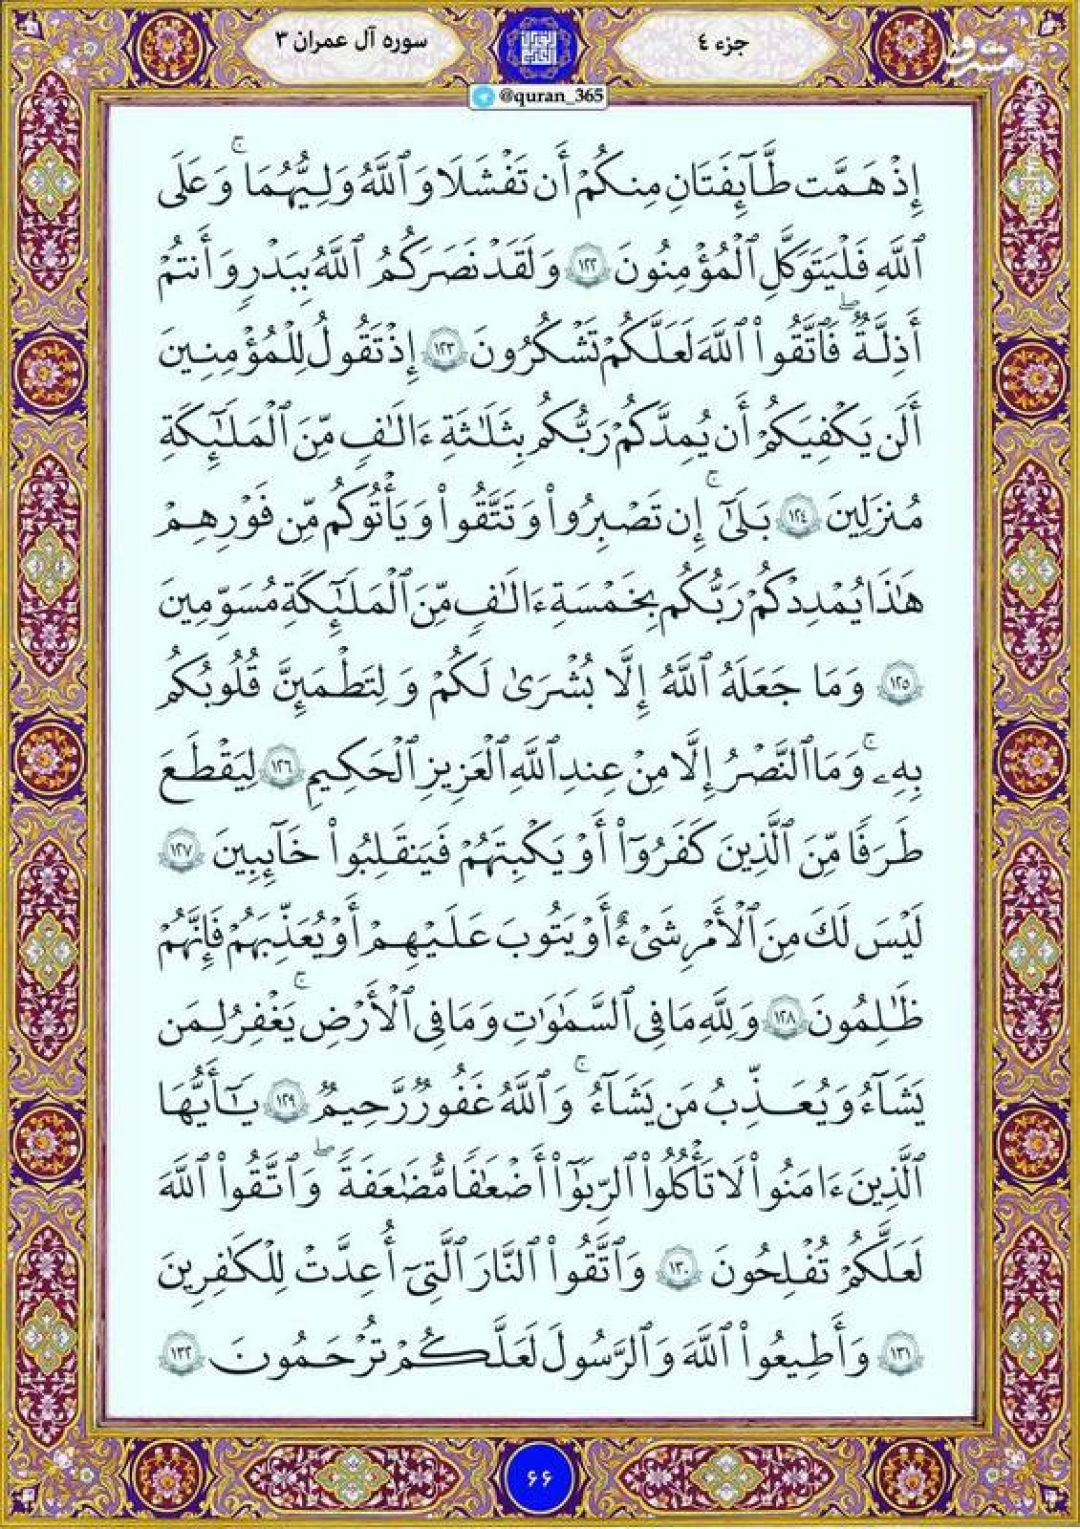 جزء ٤
سوره آل عمران ٣
@quran_365
إِذْ هَمَّت طَّآئِفَتَانِ مِنكُمْ أَن تَفْشَلَا وَٱللَّهُ وَلِيُّهُمَا ۗ وَعَلَى
ٱللَّهِ فَلْيَتَوَكَّلِ ٱلْمُؤْمِنُونَ ١٢٢ وَلَقَدْ نَصَرَكُمُ ٱللَّهُ بِبَدْرٍ وَأَنتُمْ
أَذِلَّةٌ ۖ فَٱتَّقُوا۟ ٱللَّهَ لَعَلَّكُمْ تَشْكُرُونَ ١٢٣ إِذْ تَقُولُ لِلْمُؤْمِنِينَ
أَلَن يَكْفِيَكُمْ أَن يُمِدَّكُمْ رَبُّكُم بِثَلَـٰثَةِ ءَالَـٰفٍ مِّنَ ٱلْمَلَـٰٓئِكَةِ
مُنزَلِينَ ١٢٤ بَلَىٰٓ ۚ إِن تَصْبِرُوا۟ وَتَتَّقُوا۟ وَيَأْتُوكُم مِّن فَوْرِهِمْ
هَـٰذَا يُمْدِدْكُمْ رَبُّكُم بِخَمْسَةِ ءَالَـٰفٍ مِّنَ ٱلْمَلَـٰٓئِكَةِ مُسَوِّمِينَ
١٢٥ وَمَا جَعَلَهُ ٱللَّهُ إِلَّا بُشْرَىٰ لَكُمْ وَلِتَطْمَئِنَّ قُلُوبُكُم
بِهِۦ ۗ وَمَا ٱلنَّصْرُ إِلَّا مِنْ عِندِ ٱللَّهِ ٱلْعَزِيزِ ٱلْحَكِيمِ ١٢٦ لِيَقْطَعَ
طَرَفًا مِّنَ ٱلَّذِينَ كَفَرُوٓا۟ أَوْ يَكْبِتَهُمْ فَيَنقَلِبُوا۟ خَآئِبِينَ ١٢٧
لَيْسَ لَكَ مِنَ ٱلْأَمْرِ شَىْءٌ أَوْ يَتُوبَ عَلَيْهِمْ أَوْ يُعَذِّبَهُمْ فَإِنَّهُمْ
ظَـٰلِمُونَ ١٢٨ وَلِلَّهِ مَا فِى ٱلسَّمَـٰوَٰتِ وَمَا فِى ٱلْأَرْضِ ۚ يَغْفِرُ لِمَن
يَشَآءُ وَيُعَذِّبُ مَن يَشَآءُ ۚ وَٱللَّهُ غَفُورٌ رَّحِيمٌ ١٢٩ يَـٰٓأَيُّهَا
ٱلَّذِينَ ءَامَنُوا۟ لَا تَأْكُلُوا۟ ٱلرِّبَوٰٓا۟ أَضْعَـٰفًا مُّضَـٰعَفَةً ۖ وَٱتَّقُوا۟ ٱللَّهَ
لَعَلَّكُمْ تُفْلِحُونَ ١٣٠ وَٱتَّقُوا۟ ٱلنَّارَ ٱلَّتِىٓ أُعِدَّتْ لِلْكَـٰفِرِينَ
١٣١ وَأَطِيعُوا۟ ٱللَّهَ وَٱلرَّسُولَ لَعَلَّكُمْ تُرْحَمُونَ ١٣٢
۶۶